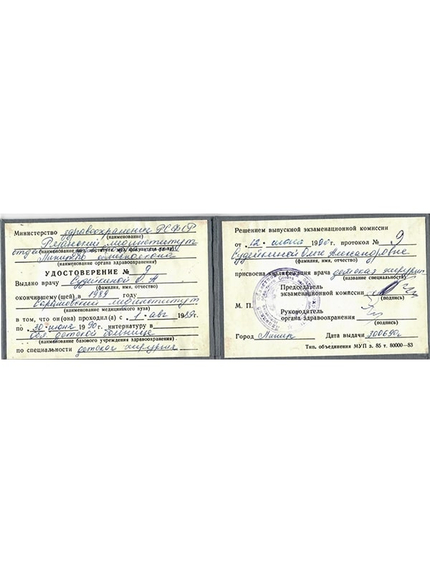 Министерство здравоохранения РСФСР
(наименование)
Рязанский мединститут
(наименование органа здравоохранения)
УДОСТОВЕРЕНИЕ № 9
Выдано врачу Судейкиной О. А
(фамилия, имя, отчество)
окончившему(шей) в 1989 году
мединститут
(наименование медицинского вуза)
в том, что он(она) проходил(а) с 1 авг 1989г.
по 30 июня 1990г. интернатуру в
обл. детской больнице
(наименование базового учреждения здравоохранения)
по специальности детская хирургия
Решением выпускной экзаменационной комиссии
от 12 июня 1990г. протокол № 9
Судейкиной Ольге Александровне
(фамилия, имя, отчество)
присвоена квалификация врача детская хирургия
(название специальности)
Председатель
экзаменационной комиссии
(подпись)
М. П.
Руководитель
органа здравоохранения
(подпись)
Город Липецк Дата выдачи 300690г
Тип. объединения МУП з. 85 т. 80000—83